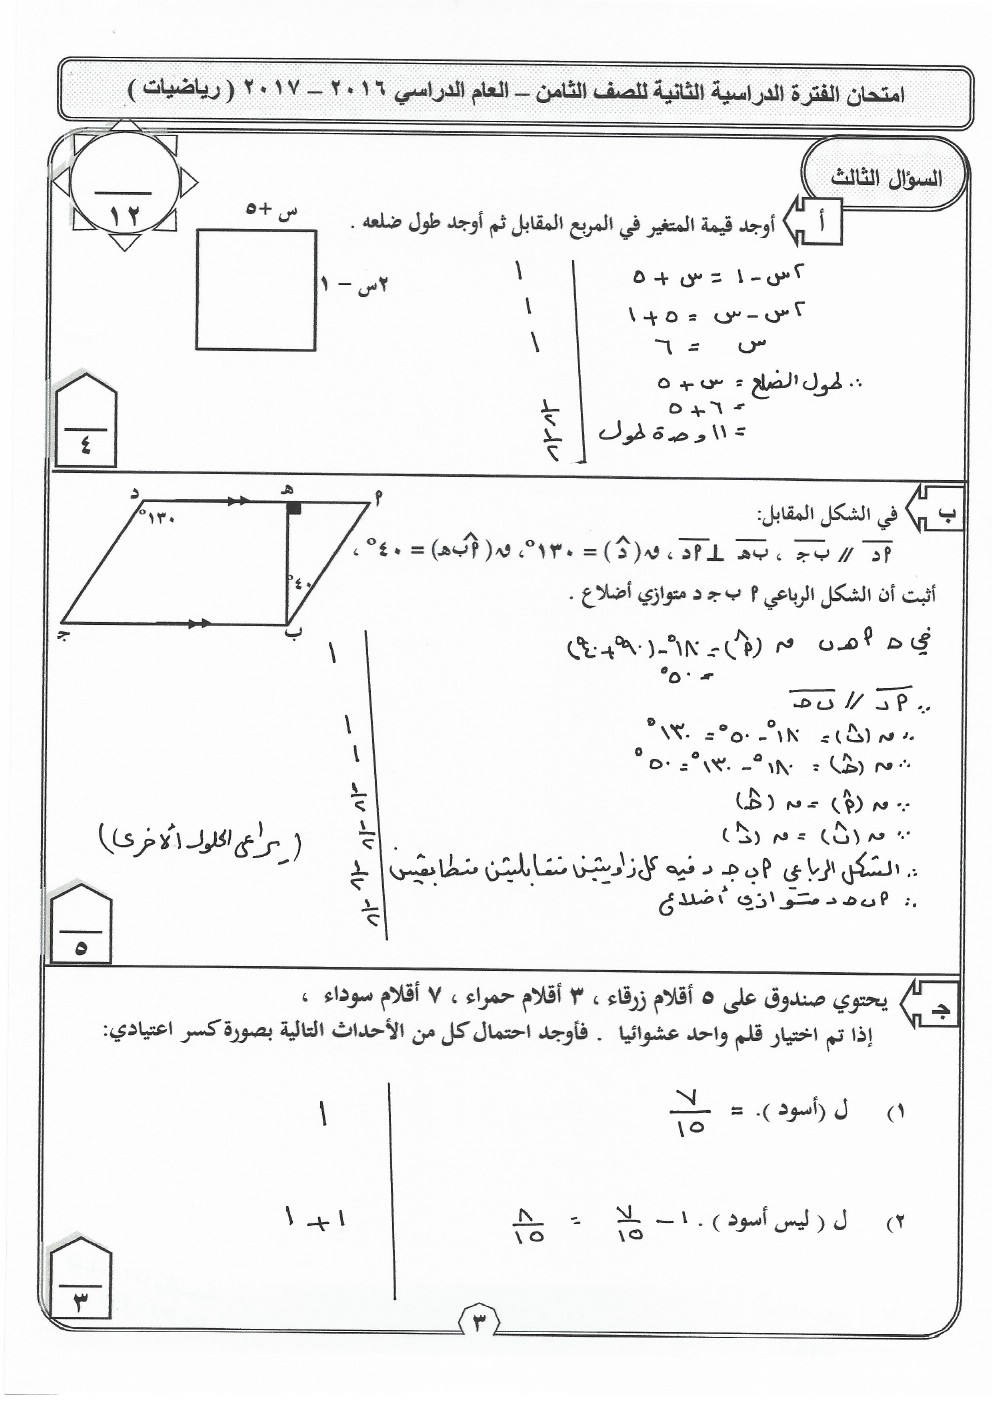 امتحان الفترة الدراسية الثانية للصف الثامن – العام الدراسي ٢٠١٦ – ٢٠١٧ ( رياضيات )
السؤال الثالث
١٢
أ
أوجد قيمة المتغير في المربع المقابل ثم أوجد طول ضلعه .
س + ٥
٢س – ١
٢س – ١ = س + ٥ ١
٢س – س = ٥ + ١ ١
س = ٦ ١
∴ طول الضلع = س + ٥
= ٦ + ٥ ١/٢
= ١١ وحدة طول ١/٢
٤
ب
في الشكل المقابل:
د هـ م ١٣٠° ٤٠° جـ ب
م د // ب جـ ، ب هـ ⊥ م د ، ن(د̂) = ١٣٠° ، ن(م ب̂ هـ) = ٤٠° ،
أثبت أن الشكل الرباعي م ب جـ د متوازي أضلاع .
في △ م هـ ب ن(م̂) = ١٨٠° – (٩٠° + ٤٠°) ١
= ٥٠°
∵ م د // ب حـ
∴ ن(ب̂) = ١٨٠° – ٥٠° = ١٣٠°
∴ ن(حـ̂) = ١٨٠° – ١٣٠° = ٥٠°
∵ ن(م̂) = ن(حـ̂) ١/٢
∵ ن(ب̂) = ن(د̂) ١/٢
∴ الشكل الرباعي م ب جـ د فيه كل زاويتين متقابلتين متطابقتين ١/٢
∴ م ب حـ د متوازي أضلاع ١/٢
( يراعى الحلول الأخرى )
٥
جـ
يحتوي صندوق على ٥ أقلام زرقاء ، ٣ أقلام حمراء ، ٧ أقلام سوداء ،
إذا تم اختيار قلم واحد عشوائيا . فأوجد احتمال كل من الأحداث التالية بصورة كسر اعتيادي:
١) ل (أسود ). = ٧/١٥ ١
٢) ل ( ليس أسود ). ١ – ٧/١٥ = ٨/١٥ ١ + ١
٣
٣